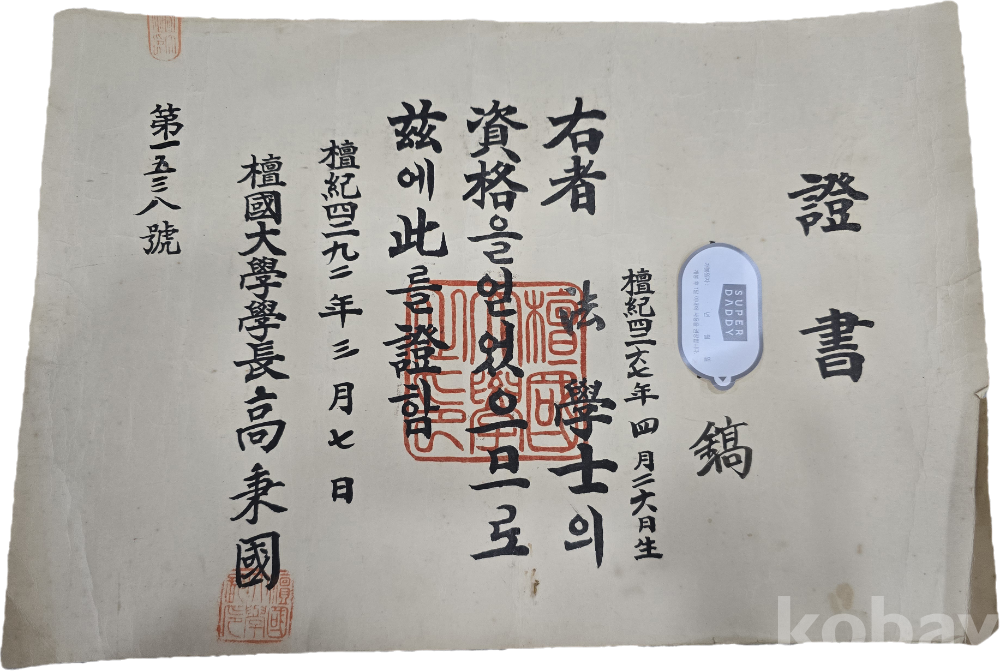 證書
鎬
SUPER
DADDY
檀紀四二六七年四月二六日生
右者 法學士의
資格을얻었으므로
玆에此를證함
檀紀四二九二年三月七日
檀國大學學長高秉國
第一五三八號
kobay